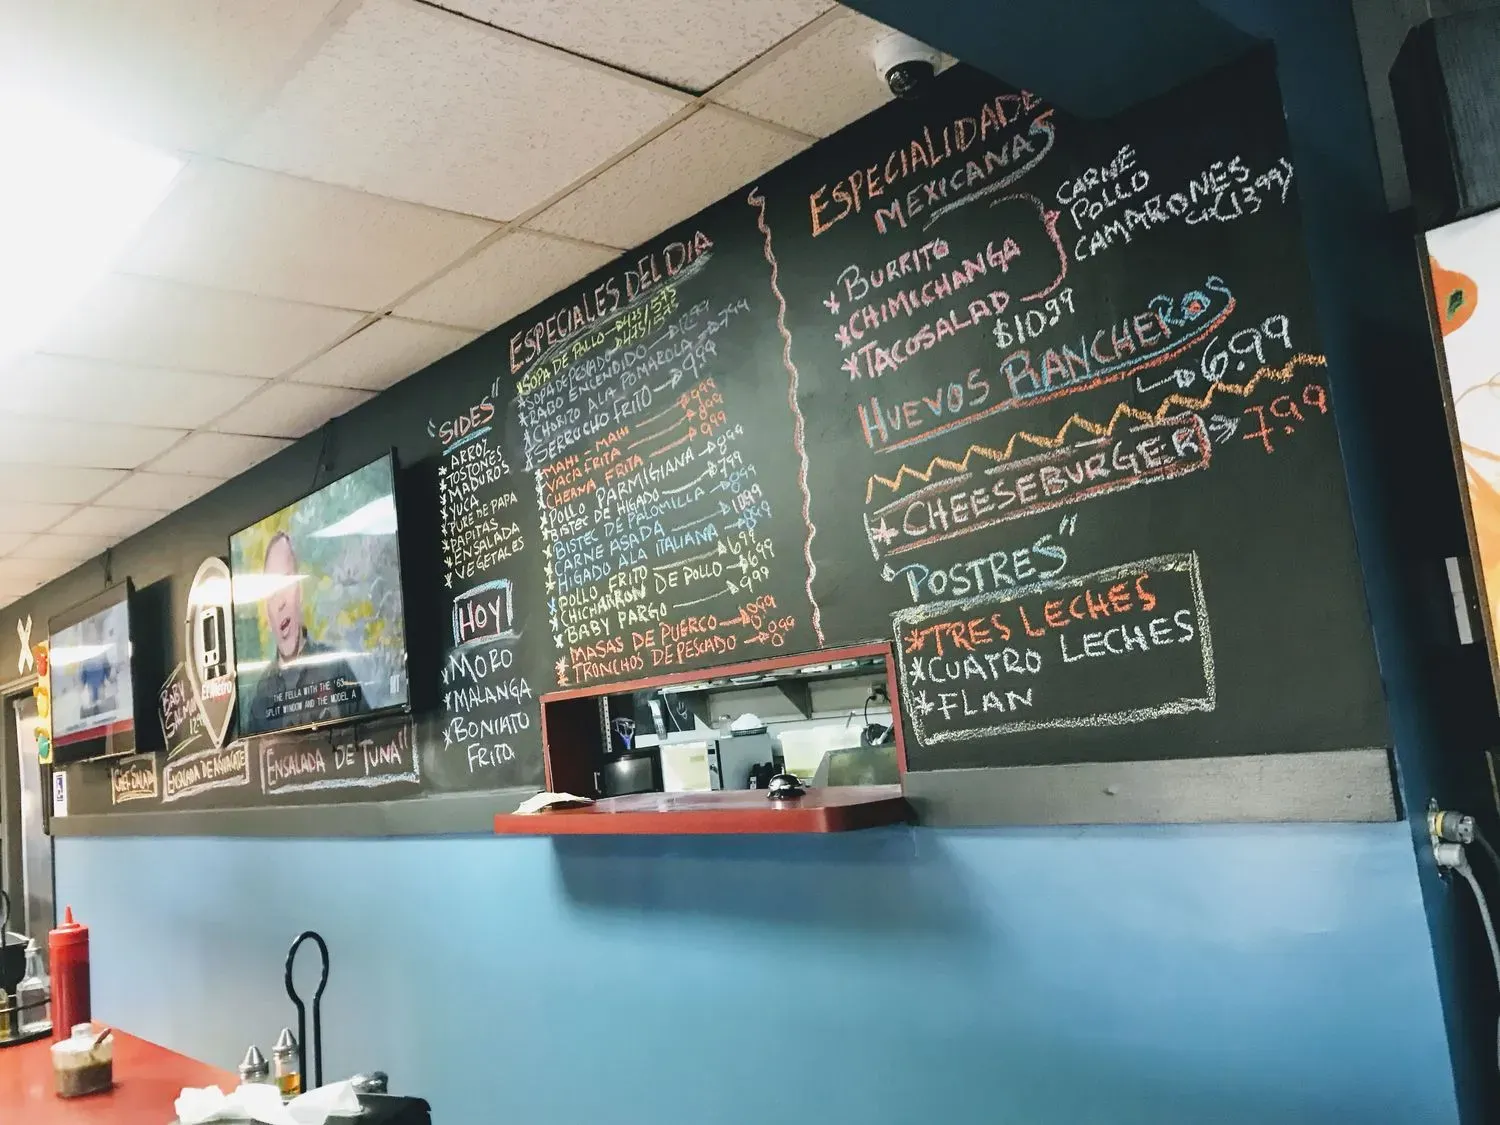 "SIDES"
* ARROZ
* TOSTONES
* MADUROS
* YUCA
* PURE DE PAPA
* PAPITAS
* ENSALADA
* VEGETALES
HOY
* MORO
* MALANGA
* BONIATO
FRITO
ESPECIALES DEL DIA
* SOPA DE POLLO 4.75/5.75
* SOPA DE PESCADO
* RABO ENCENDIDO
* CHORITO A LA POMAROLA 7.99
* SERRUCHO FRITO 9.99
* MAHI-MAHI 9.99
* VACA FRITA 8.99
* CHERNA FRITA 9.99
* POLLO PARMIGIANA 8.99
* BISTEC DE HIGADO 7.99
* BISTEC DE PALOMILLA 8.99
* CARNE ASADA 10.99
* HIGADO A LA ITALIANA 8.99
* POLLO FRITO 6.99
* CHICHARRON DE POLLO $6.99
* BABY PARGO 9.99
* MASAS DE PUERCO 9.99
* TRONCHOS DE PESCADO 8.99
ESPECIALIDADES
MEXICANAS
* BURRITO
* CHIMICHANGA
* TACOSALAD
$10.99
CARNE
POLLO
CAMARONES
(13.99)
HUEVOS RANCHEROS
6.99
* CHEESEBURGER 7.99
"POSTRES"
* TRES LECHES
* CUATRO LECHES
* FLAN
BABY
SALMON
El Metro
THE FELLA WITH THE '63
SPLIT WINDOW AND THE MODEL A
CHEF SALAD
ENSALADA DE AGUACATE
ENSALADA DE TUNA"